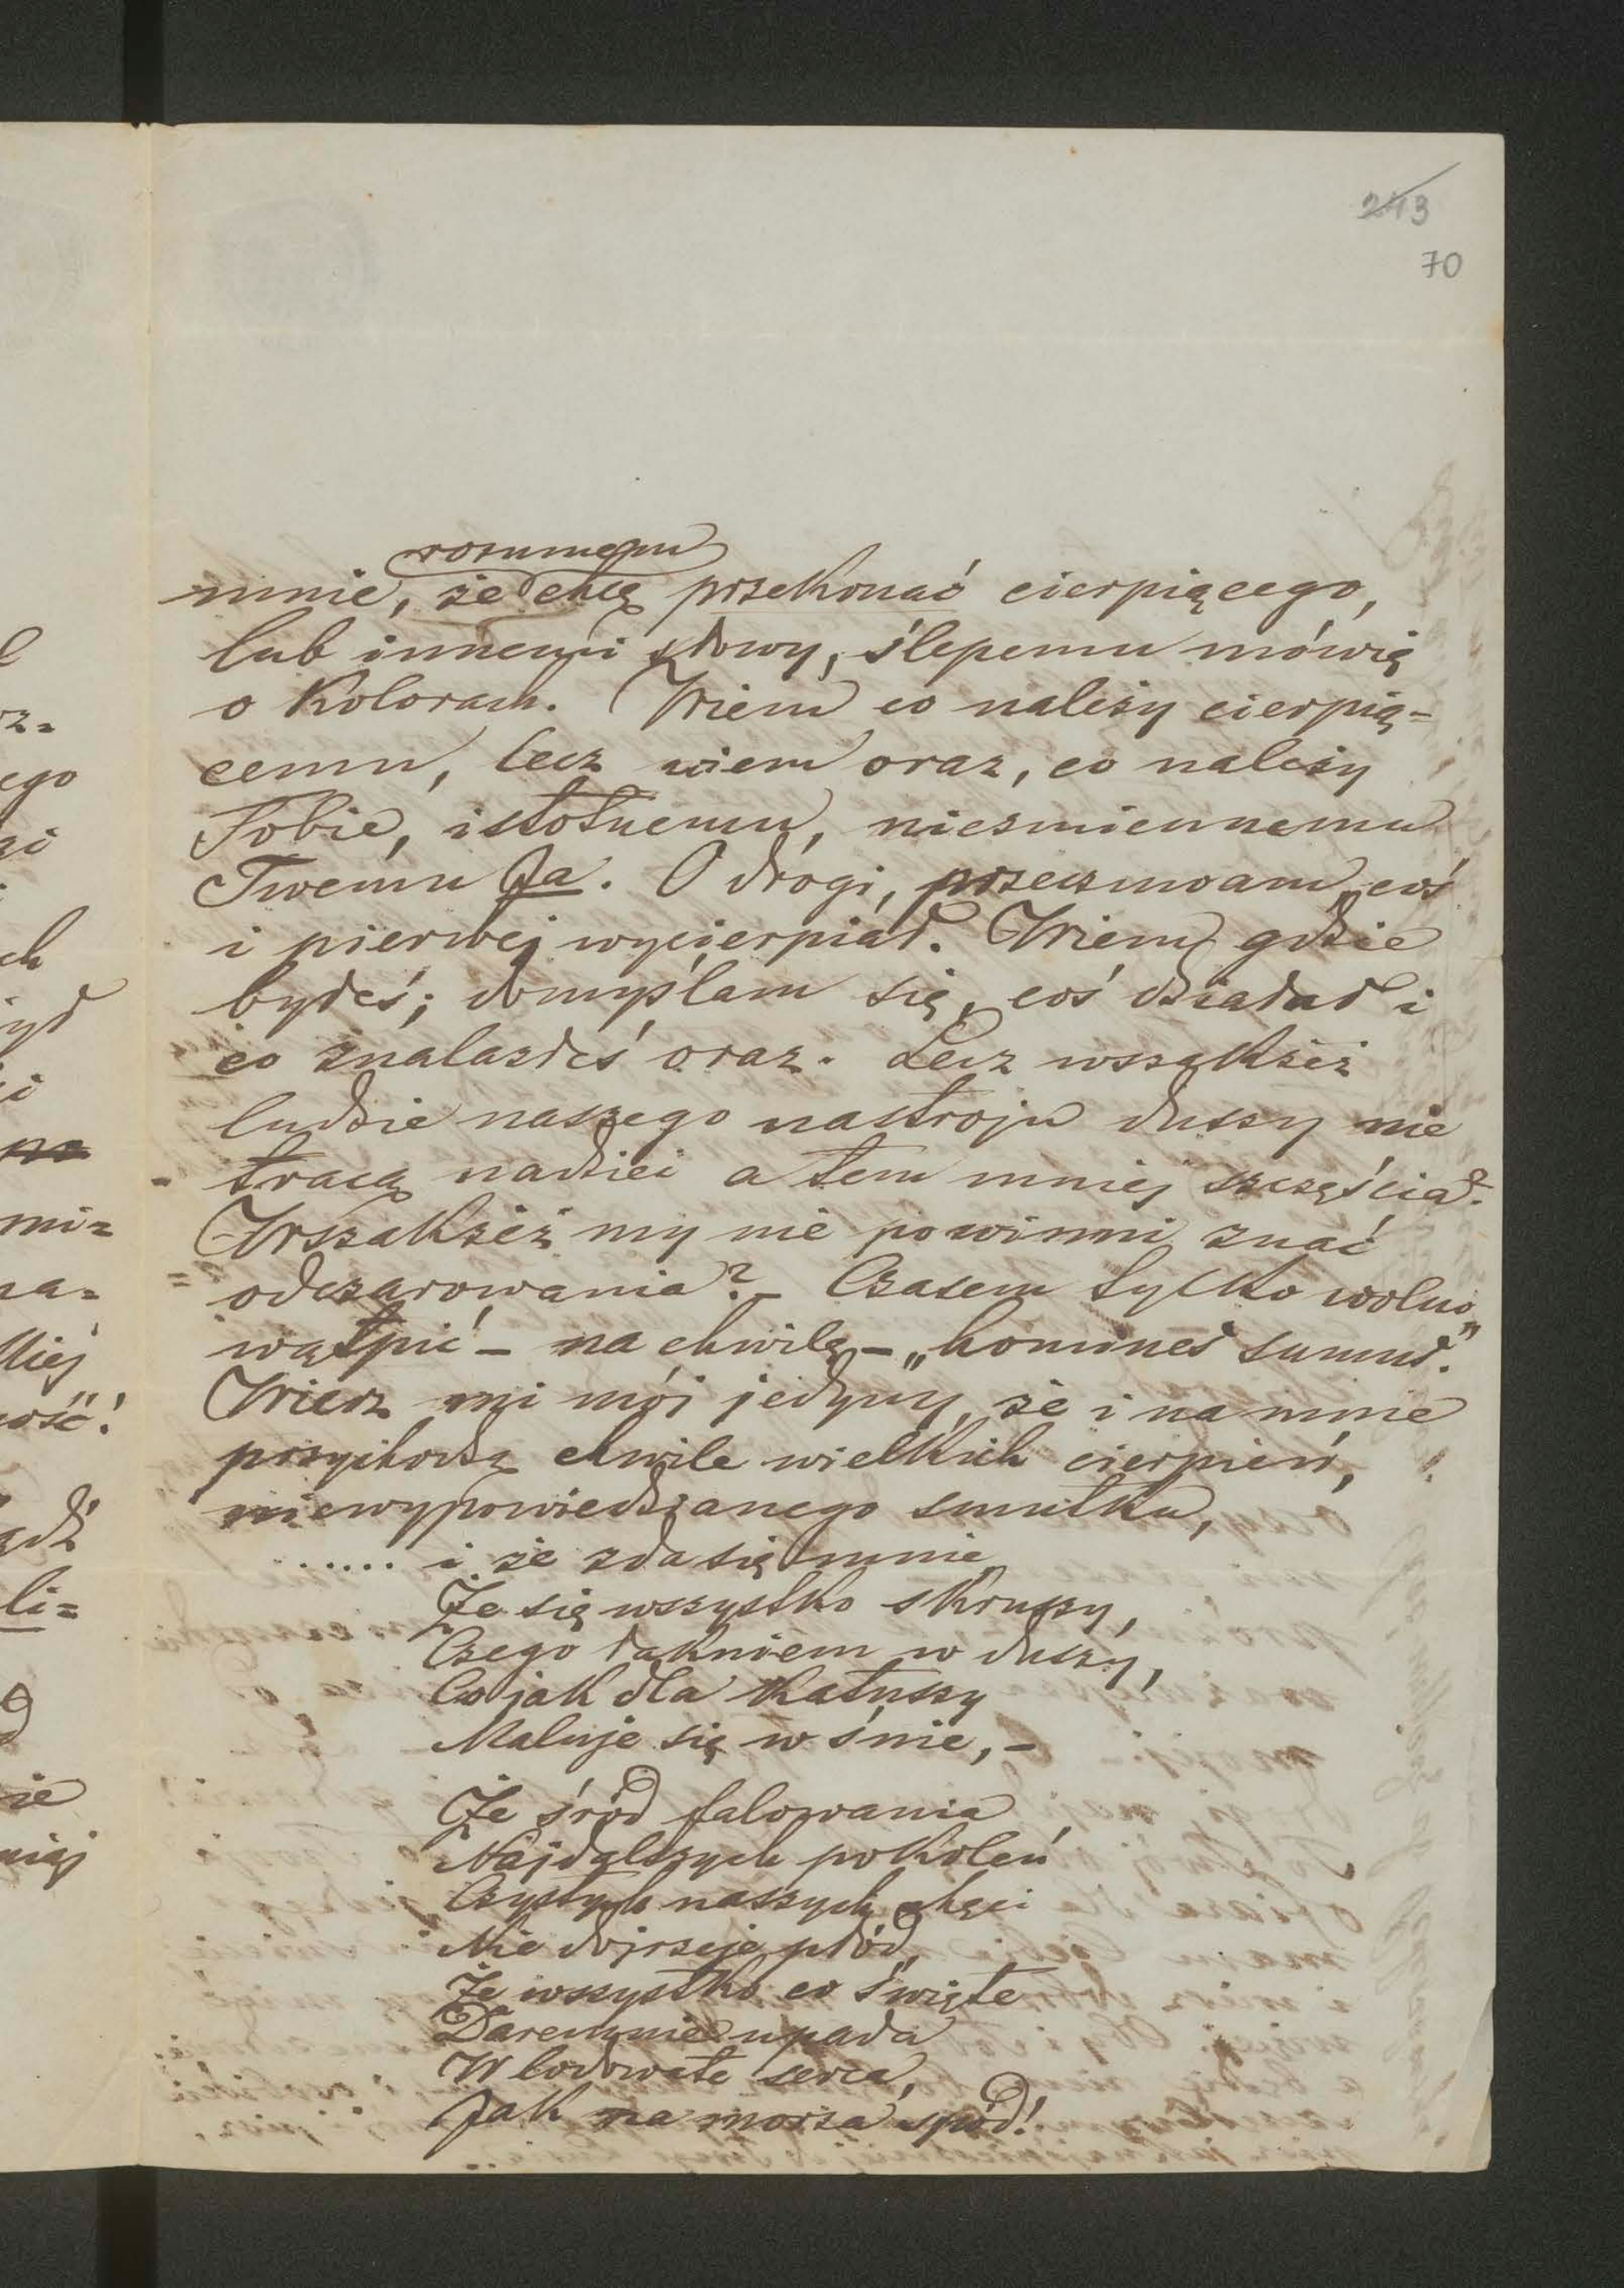 243
70
rozumem
mnie, że chcę przekonać cierpiącego,
lub innemi słowy, ślepemu mówię
o kolorach. Wiem co należy cierpią-
cemu, lecz wiem oraz, co należy
Tobie, istotnemu, niezmiennemu
Twemu Ja. O drogi, przeczuwam, coś
i pierwej wycierpiał. Wiem, gdzie
byłeś; domyślam się, coś działał i
co znalazłeś oraz. Lecz wszakżeż
ludzie naszego nastroju duszy nie
tracą nadziei a tem mniej szczęścia?
Wszakżeż my nie powinni znać
odczarowania? – Czasem tylko wolno
wątpić – na chwilę – „homines sumus."
Wierz mi mój jedyny, że i na mnie
przychodzą chwile wielkich cierpień,
niewypowiedzianego smutku,
...... i że zda się mnie
Że się wszystko skruszy,
Czego łakniem w duszy,
Co jak dla katuszy
Maluje się w śnie, –
Że śród falowania
Najdalszych pokoleń
Czystych naszych chęci
Nie dojrzeje płód,
Że wszystko co święte
Daremnie upada
W lodowate serca,
Jak na morza spód!
l
rz-
ego
zi
ch
ył
i
mi=
na=
kiej
ość"!
adź
li=
ie
niej